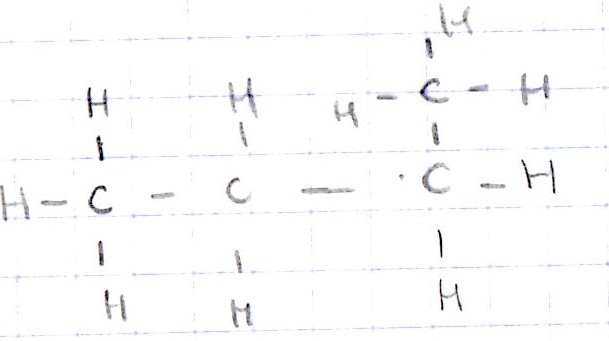 H
H H H - C - H
H - C - C — C - H
H H H